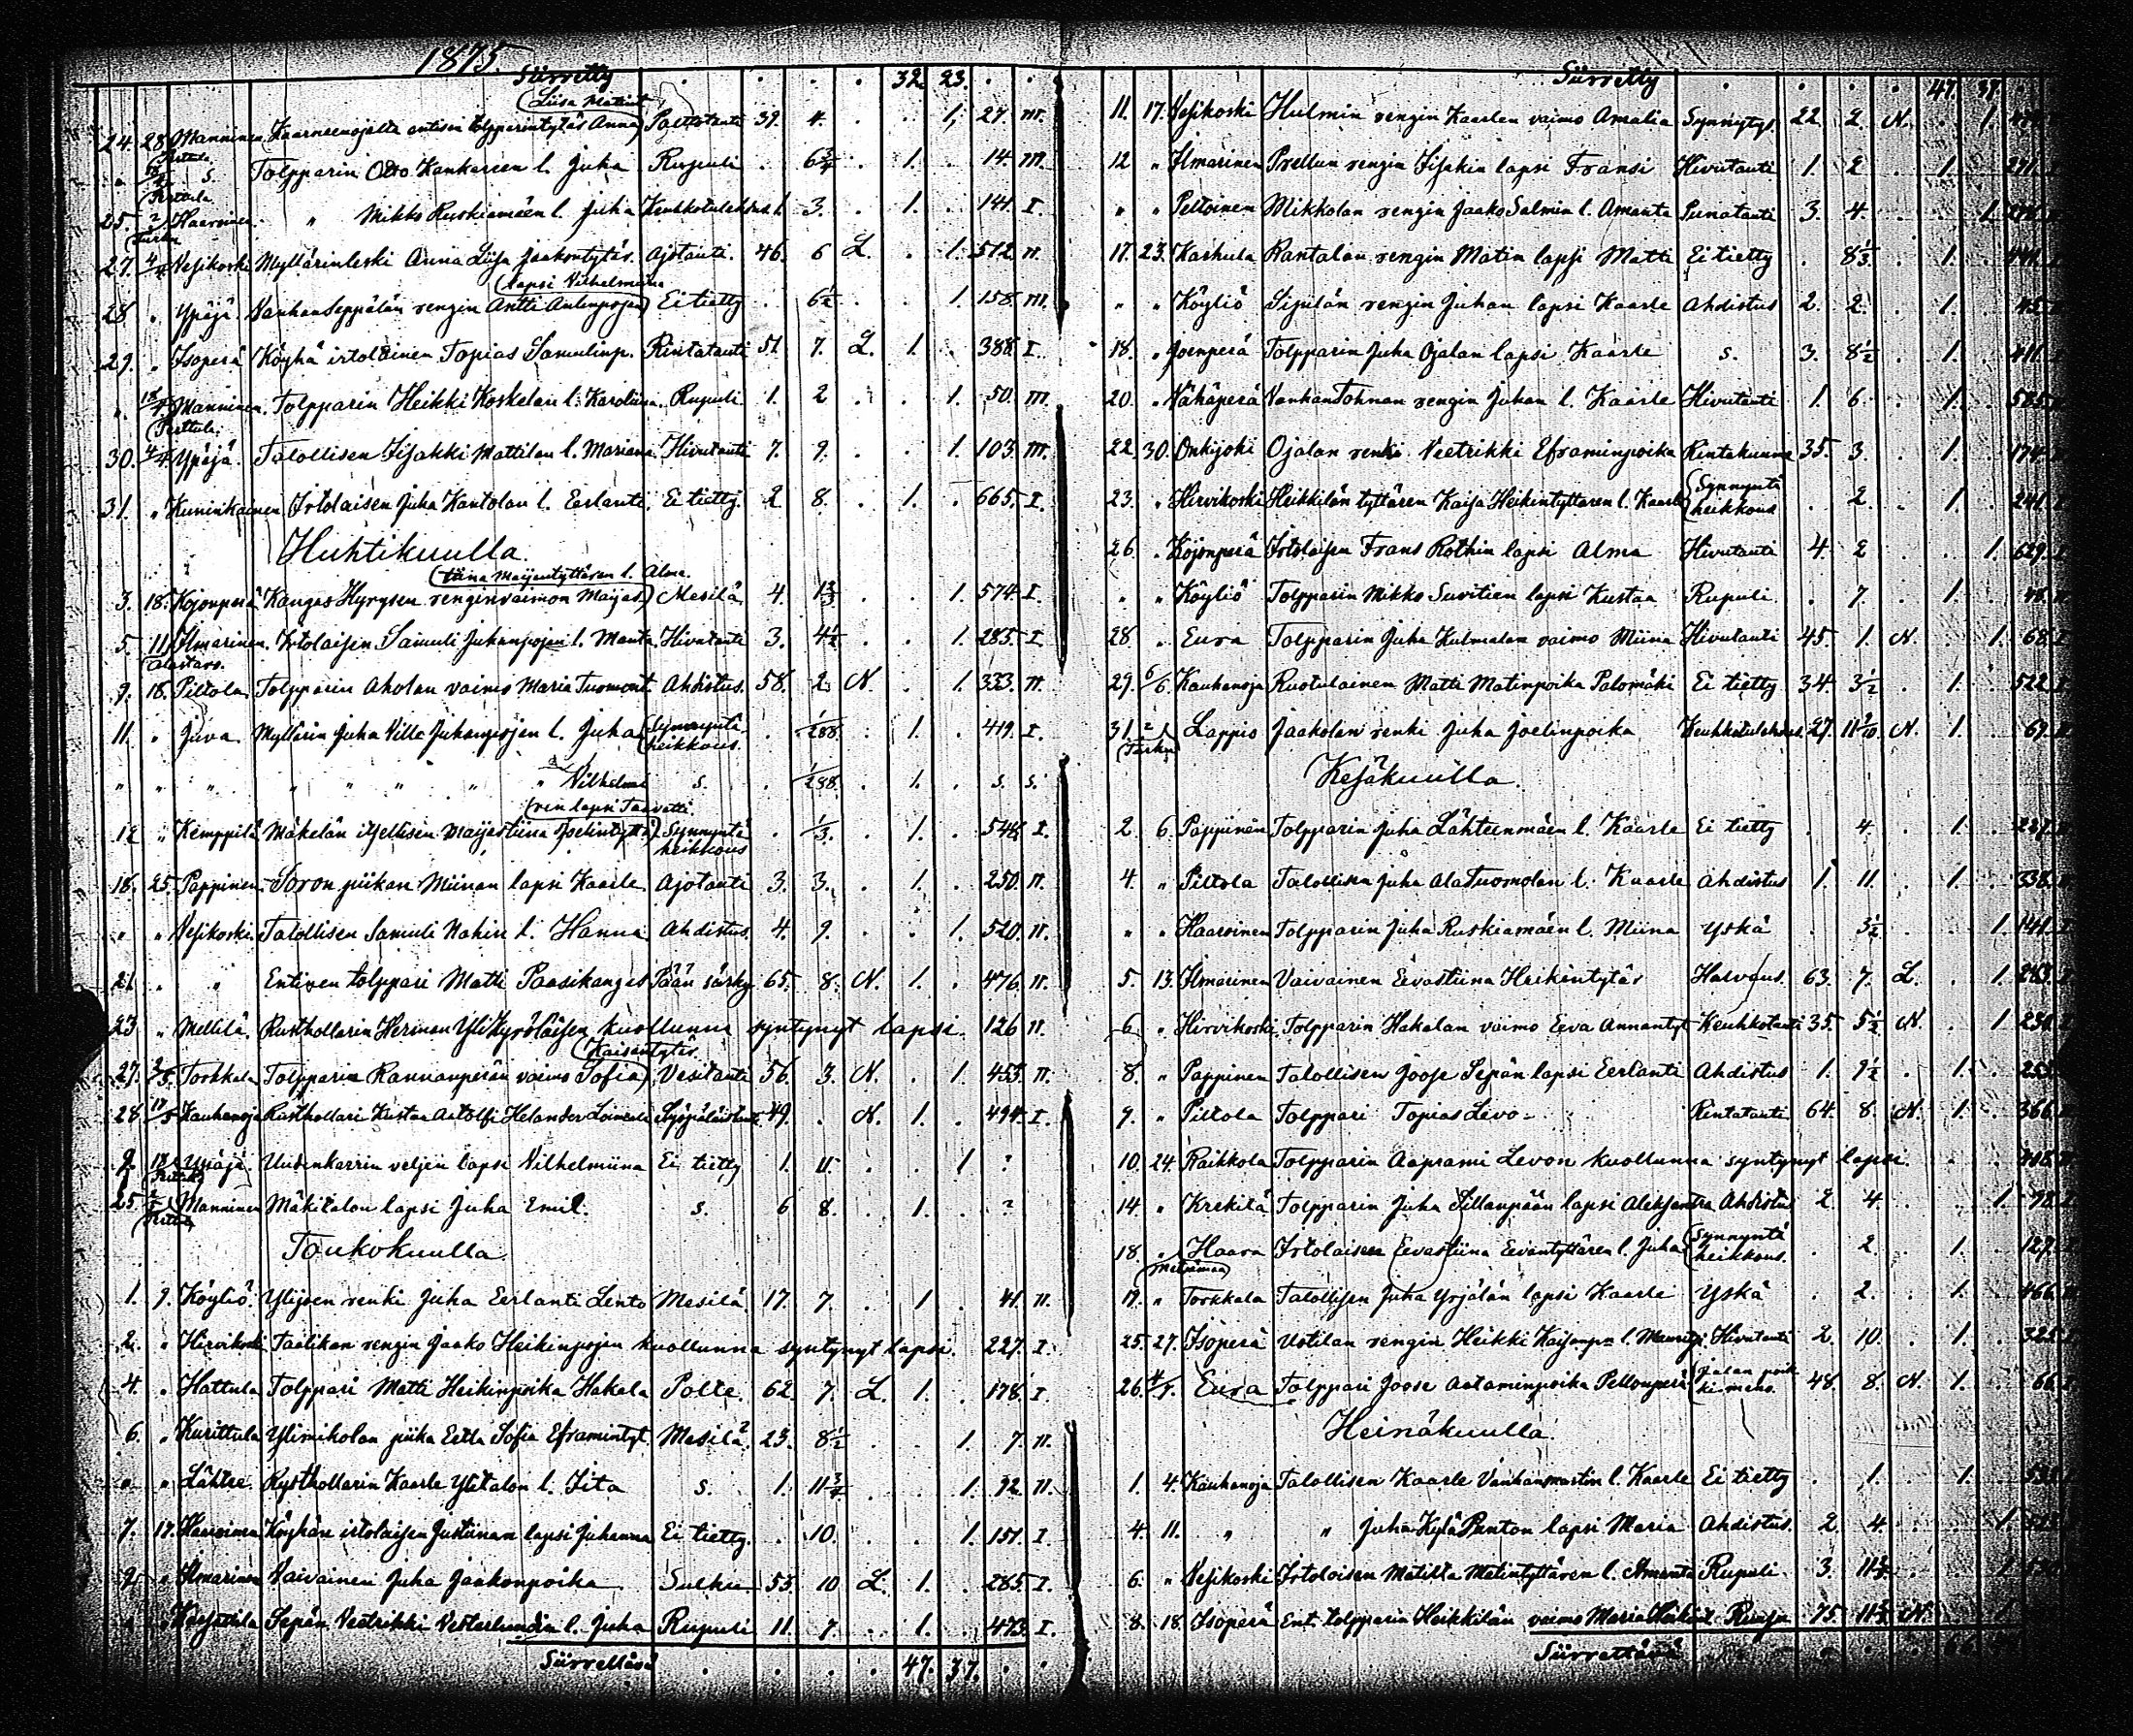 1875.
Siirretty . . . . 32. 23. . .
(Liisa Matint.
24. 28. Manninen Kaarneenojalta entisen tolpparintytär Anna) Polttotauti 39. 4. . . 1. 27. III.
(Perttula.
" S. Tolpparin Otto Kankareen l. Juha Rupuli . 6 3/4 . 1. . 14. III.
(Perttula.
25. 2/ Haaroinen " Mikko Ruskiamäen l. Juha Keuhkotulehdus 1. 3. . 1. . 141. I.
(Turku
27. 4/4 Vesikoski Myllärinleski Anna Liisa Jaakontytär. Ajotauti. 46. 6 L. . 1. 512. II.
(lapsi Vilhelmiina
28 " Ypäjä VanhanSeppälän rengin Antti Antinpojan) Ei tietty . 6 1/2 . . 1. 158. III.
29. " Isoperä Köyhä irtolainen Topias Samulinp. Rintatauti 51. 7. L. 1. . 388. I.
" Manninen. Tolpparin Heikki Koskelan l. Karoliina. Rupuli 1. 2 . . 1. 50. III.
(Perttula.
30. 4/4 Ypäjä. Talollisen Iisakki Mattilan l. Mariana Hivutauti 7. 9. . . 1. 103. III.
31. " Kuninkainen Irtolaisen Juha Kantolan l. Eerlanti. Ei tietty. 2 8. . 1. . 665. I.
Huhtikuulla.
(tiina Maijantyttären l. Alma.
3. 18. Kojonperä Kangas Hyrysen renginvaimon Maijas) Mesilä 4. 1 1/3 . . 1. 574. I.
5. 11/ Ilmarinen. Irtolaisen Samuli Juhanpojan l. Manta. Hivutauti 3. 4 1/2 . . 1. 285. I.
(Alastaro.
9. 18. Piltola Tolpparin Aholan vaimo Maria Tuomont. Ahdistus. 58. 2. N. . 1. 333. II.
11. " Juva Myllärin Juha Ville Juhanpojan l. Juha (Synnyntä heikkous. . 1/288. . 1. . 419. I.
" " " " " " " " Vilhelmi s. . 1/288. . 1. . s. s.
(ren lapsi Taavetti
12 " Kemppilä Mäkelän itsellisen Maijastiina Joelintyttä) Synnyntä heikkous . 1/3. . 1. . 548. I.
18. 25. Pappinen Soron piikan Miinan lapsi Kaarle Ajotauti 3. 3. . 1. . 250. II.
" " Vesikoski Talollisen Samuli Nahin l. Hanna Ahdistus. 4. 9. . . 1. 520. II.
21. " " Entisen tolppari Matti Paasikangas Pään särky 65. 8. N. 1. . 476. II.
23 " Mellilä. Rusthollarin Herman YliHyröläisen kuollunna syntynyt lapsi. 126 II.
(Kaisantytär.
27. 2/5. Torkkala Tolpparin Rannanperän vaimo Sofia) Vesitauti 56. 3. N. . 1. 453. II.
28 17/5 Kauhanoja Rusthollari Kustaa Aatolfi Helander 49. . N. 1. . 494. I.
9. 18 Ypäjä. Uudenkarrin veljen lapsi Vilhelmiina Ei tietty 1. 11. . . 1 ?
25 Manninen Mäkitalon lapsi Juha Emil. s. 6 8. . 1. . ?
Toukokuulla.
1. 9. Köyliö. Ylijoen renki Juha Eerlanti Lento Mesilä. 17. 7. . 1 . 41. II.
2. " Hirvikoski Taalikan rengin Jaako Heikinpojan kuollunna syntynyt lapsi. 227. I.
4. " Hattula Tolppari Matti Heikinpoika Hakala Polte. 62. 7. L. 1. . 178. I
6. " Kurittula Ylimikolan piika Eetla Sofia Eframintyt. Mesilä. 23. 8 1/2 . . 1. 7. II.
" " Lähtee Rysthollarin Kaarle Ylitalon l. Iita s. 1. 11 3/4 . . 1. 92. II.
7. 17. Haaroinen Köyhän irtolaisen Justiinan lapsi Juhanna Ei tietty. . 10. . . 1. 151. I
9. " Ilmarinen Vaivainen Juha Jaakonpoika Sulku 55. 10 L. 1. . 285. I.
" " Sepän Veetrikki Vesterlundin l. Juha Rupuli 11. 7. . 1. . 473. I.
Siirrettävä . . . . 47. 37. . .
Siirretty . . . . 47. 37. .
11. 17. Vesikoski Hulmin rengin Kaarlen vaimo Amalia Synnytys. 22. 2. N. . 1.
12 " Ilmarinen Prellun rengin Iisakin lapsi Fransi Hivutauti 1. 2 . 1. . 271.
" " Peltoinen Mikkolan rengin Jaako Salmin l. Amanta Punatauti 3. 4. . . 1.
17. 23. Kaskula Rantalan rengin Matin lapsi Matti Ei tietty . 8 1/3. . 1. .
" " Köyliö Sipilän rengin Juhan lapsi Kaarle Ahdistus 2. 2. . 1. . 45.
18. " Joenperä Tolpparin Juha Ojalan lapsi Kaarle s. 3. 8 1/2 . 1. .
20. " Vähäperä VanhanTohnan rengin Juhan l. Kaarle Hivutauti 1. 6. . 1. .
22. 30. Onkijoki Ojalan renki Veetrikki Eframinpoika Rintakuume 35. 3. . 1. . 174.
23. " Hirvikoski Heikkilän tyttären Kaisa Heikintyttären l. Kaarle (Synnyntä heikkous . 2. . 1. . 241.
26 " Kojonperä Irtolaisen Frans Rothin lapsi Alma Hivutauti 4. 2 . . 1. 629.
" " Köyliö Tolpparin Mikko Suvitien lapsi Kustaa Rupuli . 7. . 1. .
28 " Eura Tolpparin Juha Kulmalan vaimo Miina Hivutauti 45. 1. N. . 1. 68.
29. 6/6. Kauhanoja Ruotulainen Matti Matinpoika Palomäki Ei tietty 34. 3 1/2 . 1. . 522.
31. Lappio Jaakolan renki Juha Joelinpoika Keuhkotulehdus. 27. N. 1. . 69.
(Turku)
Kesäkuulla.
2. 6. Pappinen Tolpparin Juha Lähteenmäen l. Kaarle Ei tietty . 4. . 1. .
4. " Piltola Talollisen Juha AlaTuomolan l. Kaarle Ahdistus 1. 11. . 1. . 338.
" " Haaroinen Tolpparin Juha Ruskiamäen l. Miina Yskä . 3 1/2. . . 1. 141.
5. 13. Ilmarinen Vaivainen Eevastiina Heikintytär Halvaus. 63. 7. L. . 1.
6 " Hirvikoski Tolpparin Hakalan vaimo Eeva Annantyt Keuhkotauti 35. 5 1/2. N. . 1
8. " Pappinen Talollisen Joose Sepän lapsi Eerlanti Ahdistus 1. 9 1/2 . 1. .
9. " Piltola Tolppari Topias Levo Rintatauti 64. 8. N. 1. . 366.
10. 24. Raikkola Tolpparin Aaprami Levon kuollunna syntynyt lapsi.
14. " Krekilä Tolpparin Juha Sillanpään lapsi Aleksantra Ahdistus 2. 4. . . 1. 98.
18. " Haara Irtolaisen Eevastiina Eevantyttären l. Juha (Synnyntä heikkous. . 2. . 1. . 127.
(Metsämaa)
19. " Torkkala Talollisen Juha Yrjälän lapsi Kaarle Yskä . 2. . 1. . 466.
25. 27. Isoperä Uotilan rengin Heikki l. Mauritsi Hivutauti 2. 10. . 1. . 325.
26. 4/7. Eura Tolppari Joose Aataminpoika Pellonperä (jalan poik- ki meno. 48. 8. N. 1. . 66.
Heinäkuulla.
1. 4. Kauhanoja Talollisen Kaarle Vanhanmartin l. Kaarle Ei tietty . 1. . 1. .
4. 11. " " Juha KyläPenton lapsi Maria Ahdistus. 2. 4. . . 1.
6. " Vesikoski Irtolaisen Matilta Matintyttären l. Amanta Rupuli. 3. . . 1
8. 18. Isoperä Ent. tolpparin Heikkilän vaimo Maria 75. N. . 1
Siirrettävä 66